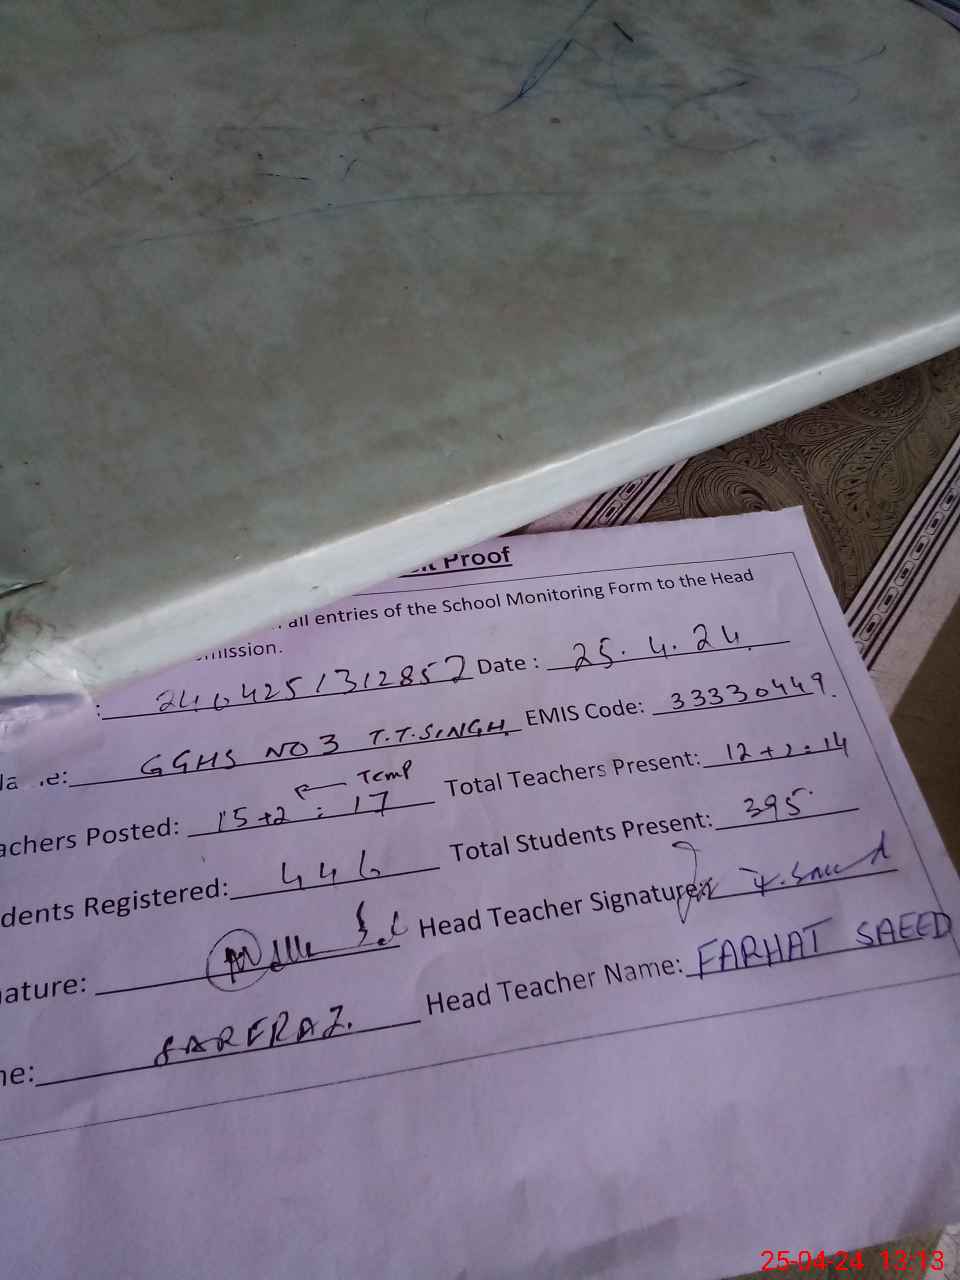 Proof
all entries of the School Monitoring Form to the Head
mission.
: 2404251312852 Date : 25.4.24
e: GGHS NO 3 T.T.SINGH EMIS Code: 33330449.
Temp
achers Posted: 15+2 : 17 Total Teachers Present: 12+2:14
dents Registered: 446 Total Students Present: 395
ature: Head Teacher Signature: F.Saeed
ne: SARFRAZ. Head Teacher Name: FARHAT SAEED
25-04-24 13:13